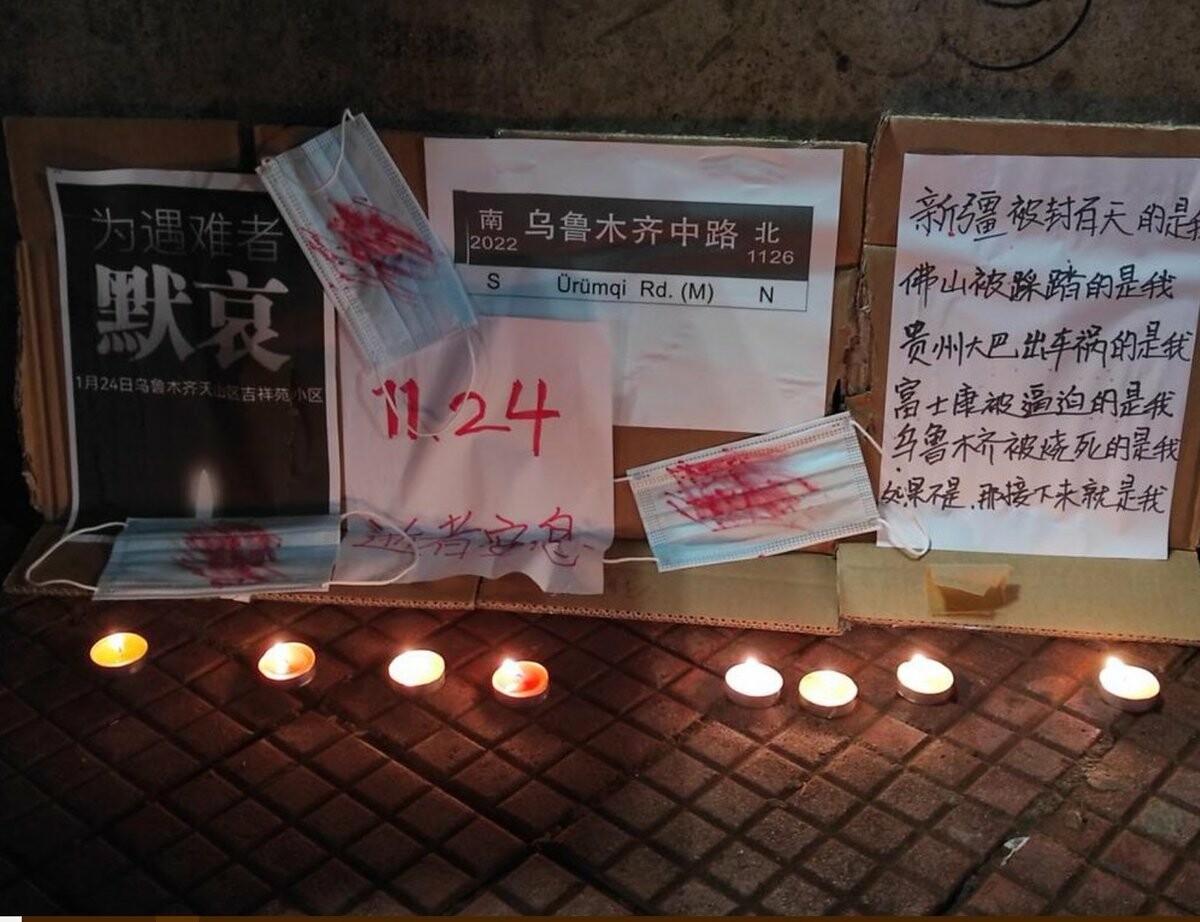 为遇难者
默哀
1月24日乌鲁木齐天山区吉祥苑小区
南 乌鲁木齐中路 北
2022 1126
S Ürümqi Rd. (M) N
11.24
逝者安息
新疆被封百天的是我
佛山被踩踏的是我
贵州大巴出车祸的是我
富士康被逼迫的是我
乌鲁木齐被烧死的是我
如果不是,那接下来就是我